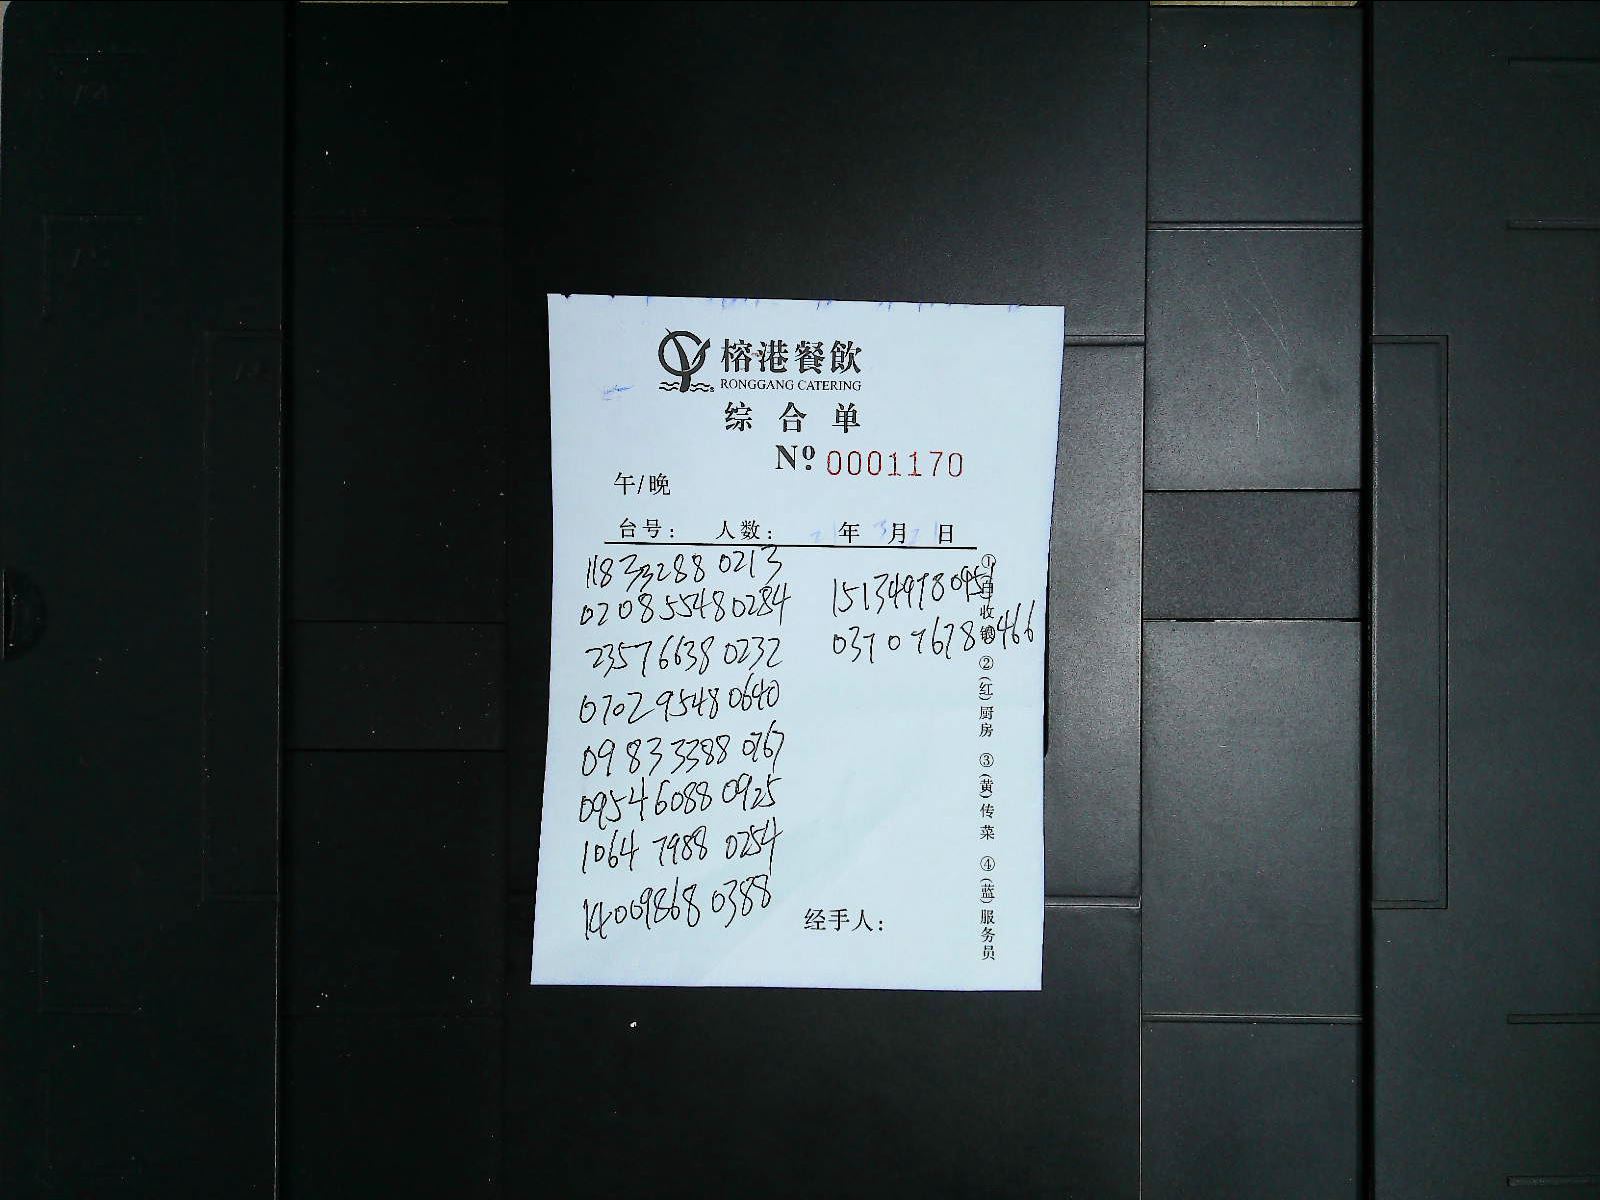 榕港餐飲
RONGGANG CATERING
综合单
Nº 0001170
午/晚
台号： 人数： 21年 3月21日
118332880213
020855480284
235766380232
070295480640
098333880767
095460880925
106479880254
140098680388
151349980951
037096780466
经手人：
②(红)厨房 ③(黄)传菜 ④(蓝)服务员